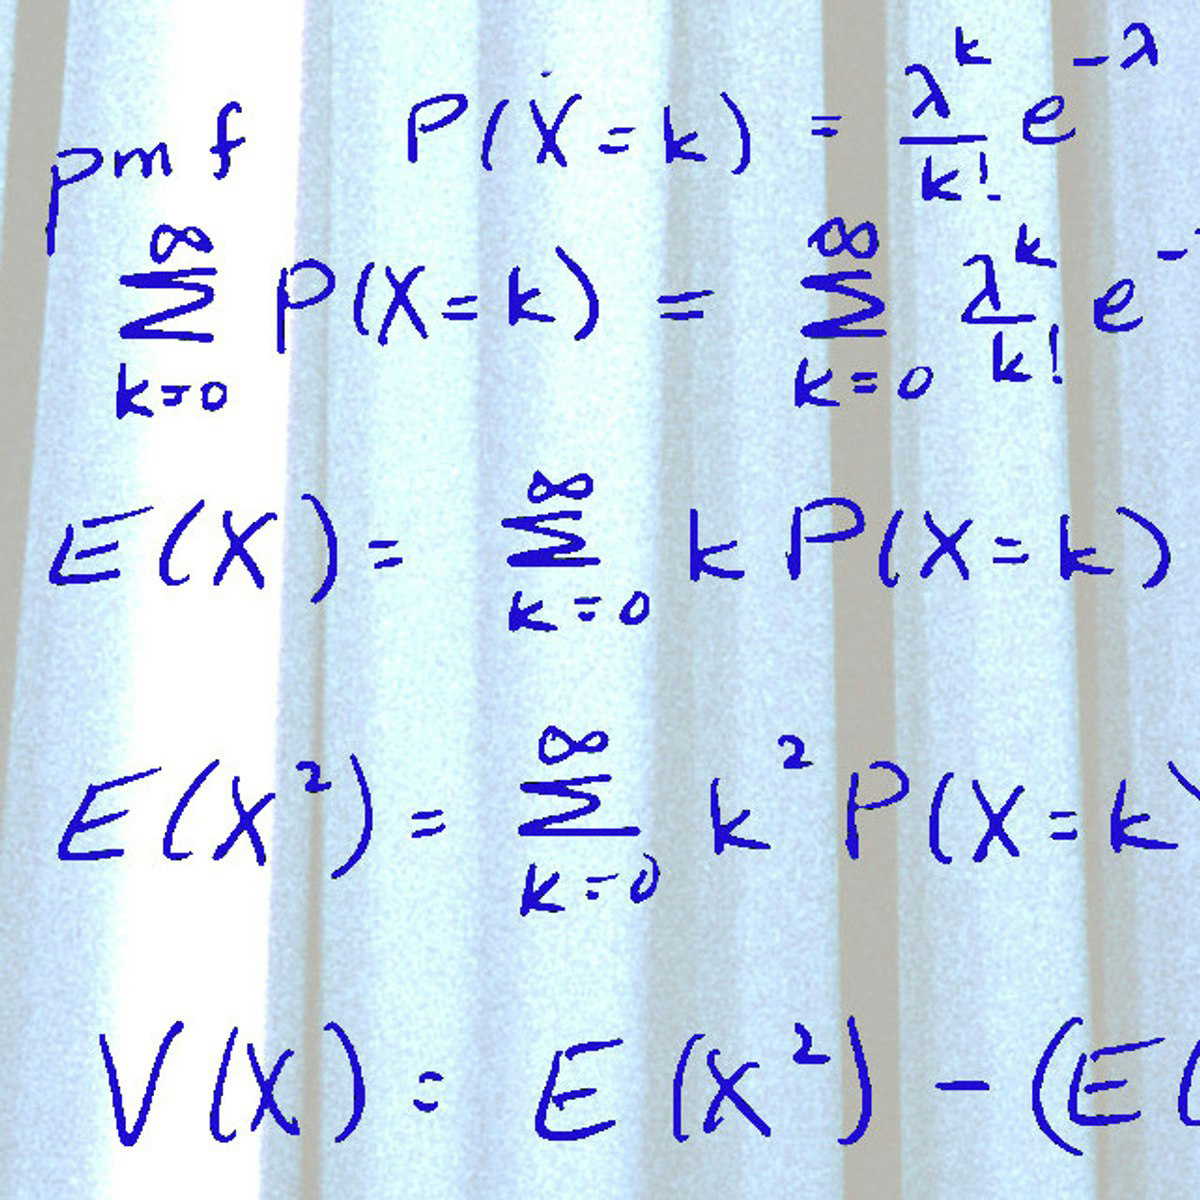 pmf P(X=k) = λ^k/k! e^-λ
∞∑k=0 P(X=k) = ∞∑k=0 λ^k/k! e^-
E(X) = ∞∑k=0 k P(X=k)
E(X²) = ∞∑k=0 k² P(X=k)
V(X) = E(X²) - (E(